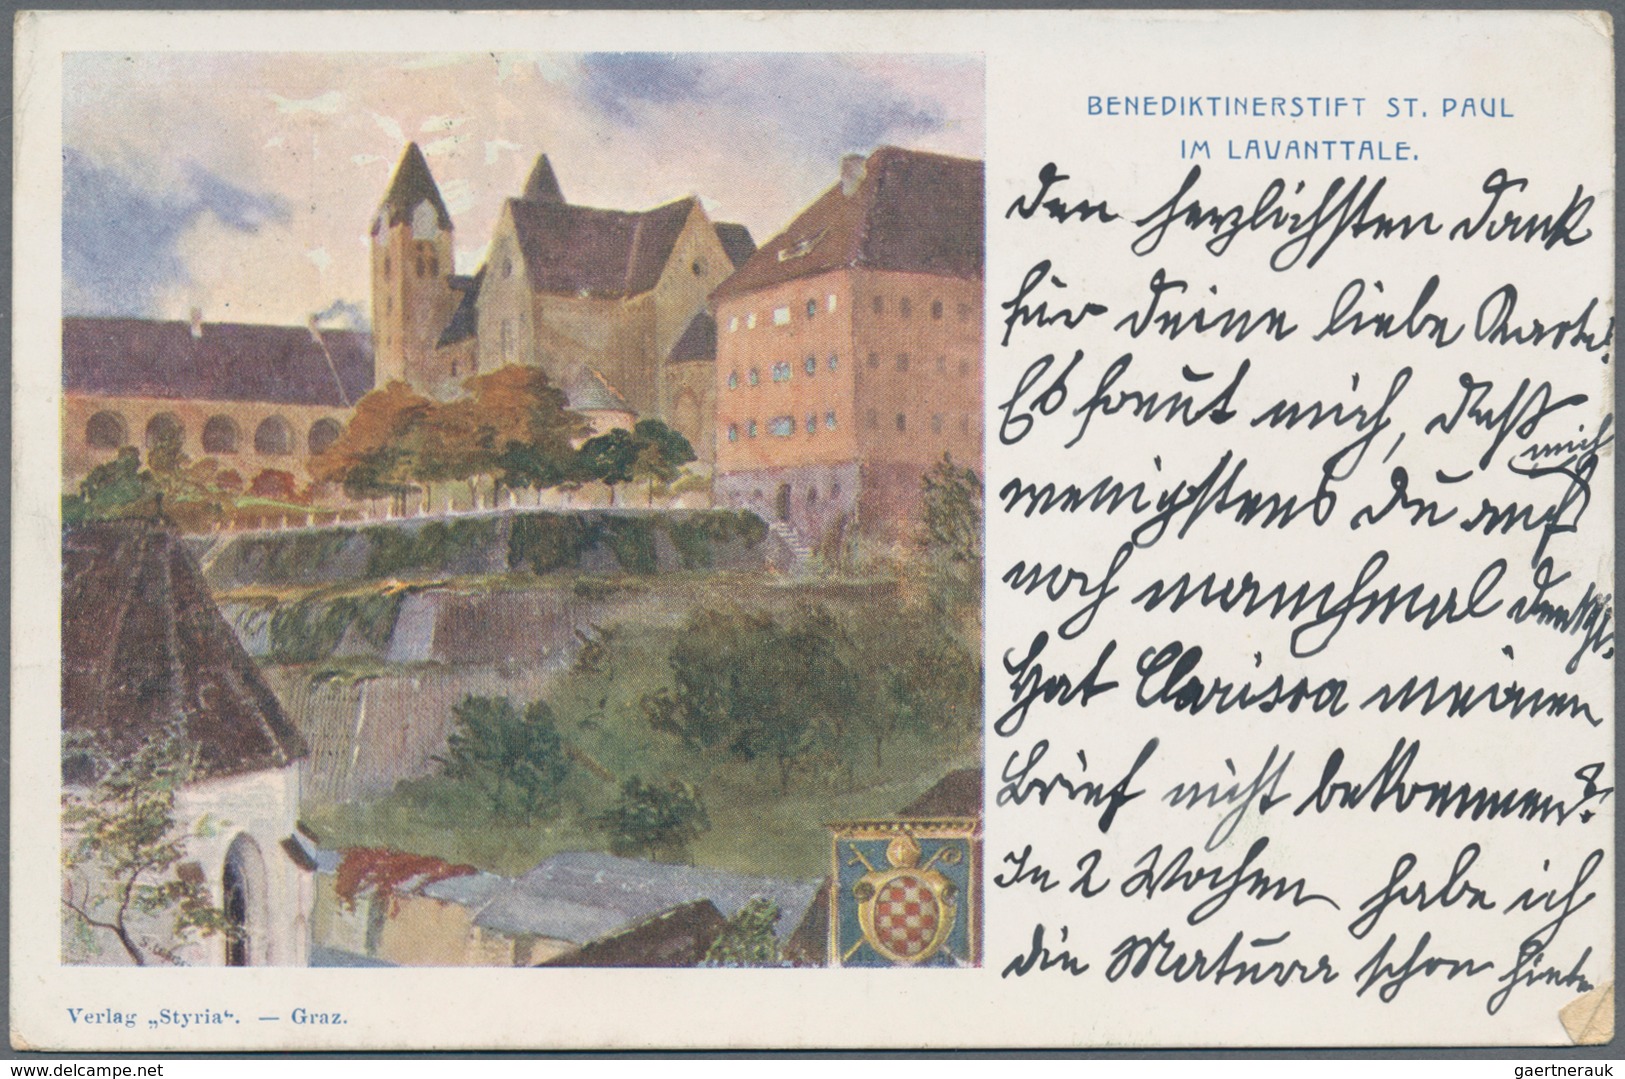 BENEDIKTINERSTIFT ST. PAUL
IM LAVANTTALE.
Den herzlichsten Dank
für Deine liebe Karte!
Es freut mich, daß
wenigstens Du auf mich
noch manchmal denkst.
Hat Clarissa meinen
Brief nicht bekommen?
In 2 Wochen habe ich
die Matura schon hinter
Verlag „Styria“. — Graz.
www.stamp-auctions.de
gaertnerauk